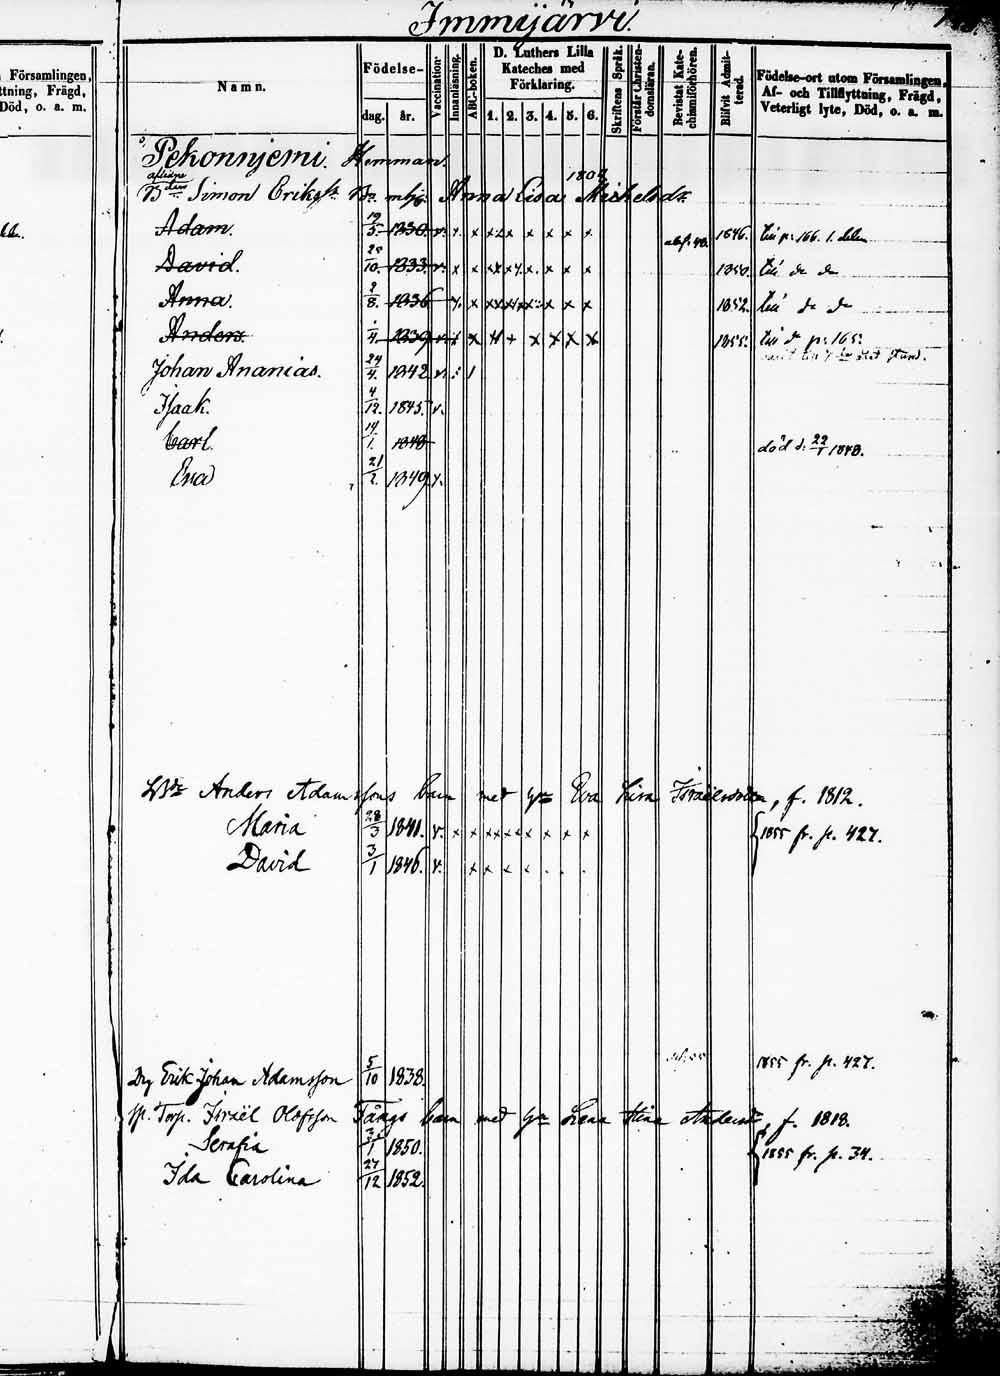 Immijärvi.
Församlingen,
ttning, Frägd,
Död, o. a. m.
Namn.
Födelse-
dag. år.
Vaccination.
Innanläsning.
ABC-boken.
D. Luthers Lilla
Kateches med
Förklaring.
1. 2. 3. 4. 5. 6.
Skriftens Språk.
Förstår Christen-
domsläran.
Revistat Kate-
chismiförhören.
Blifvit Admit-
terad.
Födelse-ort utom Församlingen,
Af- och Tillflyttning, Frägd,
Veterligt lyte, Död, o. a. m.
Pekonnjemi. Hemman.
aflidne 1809
Simon Eriks Anna Lisa Michelsdr.
Adam. 19/5. 1830. v. x x x x x x x x 1846. till p. 166. 1. delen
David. 28/10. 1833 v. x x x x x x x x 1850. till do do
Anna. 2/8. 1836 x x x x x x x 1852. till do do
Anders. 1/4. 1839 v. x x x + x x x x 1855. till do p. 165.
Johan Ananias. 24/4. 1842 v.
Isaak. 4/12. 1845. v.
Carl. 14/1. 1848 död d. 22/1 1848.
Eva 21/2. 1849 v.
Anders Adamssons barn med Eva Lisa Israelsdotter, f. 1812.
Maria 28/3 1841. v. x x x x x x x x x 1855 fr. p. 427.
David 3/1 1846. v. x x x x . . .
Drg Erik Johan Adamsson 5/10 1838. 1855 fr. p. 427.
sp. Torp. Israël Olofsson Fångs barn med Lena Stina Andersdr, f. 1818.
Serafia 1850. 1855 fr. p. 34.
Ida Carolina 27/12 1852.